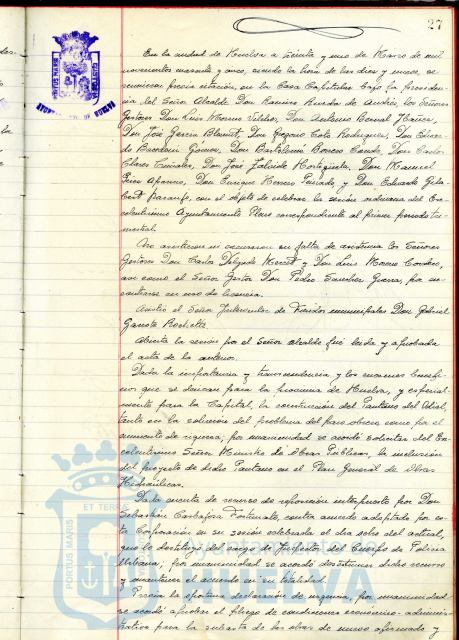 27
En la ciudad de Huelva a treinta y uno de Marzo de mil
novecientos cuarenta y cinco, siendo la hora de las diez y nueve, se
reunieron previa citación, en la Casa Capitular bajo la presiden-
cia del Señor Alcalde Don Ramiro Rueda de Andrés, los Señores
Gestores Don Luis Moreno Don Antonio Bernal
Don José García Don Gregorio Coto Rodríguez, Don
de Gómez, Don Bartolomé Borrero Conde, Don Carlos
Don José Don Manuel
Pérez Don Enrique Herrero y Don Eduardo
con el objeto de celebrar la sesión ordinaria del Ex-
celentísimo Ayuntamiento Pleno correspondiente al primer periodo tri-
mestral.
No asistieron ni excusaron su falta de asistencia los Señores
Gestores Don Carlos Delgado y Don Luis Morón Cordero,
así como el Señor Gestor Don Pedro Sánchez Guerra, por en-
contrarse en uso de licencia.
Asistió el Señor Interventor de Fondos municipales Don Gabriel
Abierta la sesión por el Señor Alcalde fué leída y aprobada
el acta de la anterior.
Dada la importancia y transcendencia y los enormes benefi-
cios que se derivan para la provincia de Huelva, y especial-
mente para la Capital, la construcción del Pantano del Odiel,
tanto en la solución del problema del paro obrero como por el
aumento de riqueza, por unanimidad se acordó solicitar del Ex-
celentísimo Señor Ministro de Obras Públicas, la inclusión
del proyecto de dicho Pantano en el Plan General de Obras
Hidráulicas.
Dada cuenta de recurso de reposición interpuesto por Don
Sebastián Carbajosa contra acuerdo adoptado por es-
ta Corporación en su sesión celebrada el día ocho del actual,
que lo destituyó del cargo de Inspector del Cuerpo de Policía
Urbana, por unanimidad se acordó desestimar dicho recurso
y mantener el acuerdo en su totalidad.
Previa la oportuna declaración de urgencia, por unanimidad
se acordó aprobar el pliego de condiciones económico-adminis-
trativas para la subasta de las obras de nuevo afirmado y